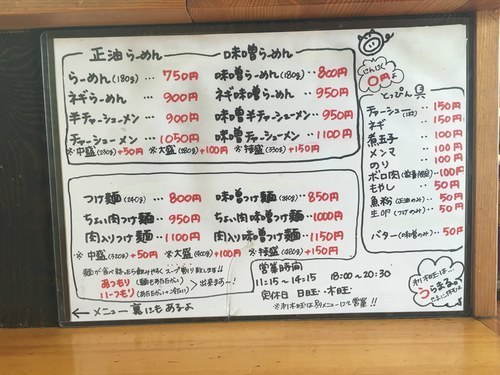 正油らーめん
らーめん(180g) … 750円
ネギらーめん … 900円
半チャーシューメン … 900円
チャーシューメン … 1050円
味噌らーめん
味噌らーめん(180g) … 800円
ネギ味噌らーめん … 950円
味噌半チャーシューメン … 950円
味噌チャーシューメン … 1100円
※中盛(230g)+50円 ※大盛(280g)+100円 ※特盛(330g)+150円
つけ麺(240g) … 800円
ちょい肉つけ麺 … 950円
肉入りつけ麺 … 1100円
味噌つけ麺(240g) … 850円
ちょい肉味噌つけ麺 … 1000円
肉入り味噌つけ麺 … 1150円
※中盛(320g)+50円 ※大盛(400g)+100円 ※特盛(480g)+150円
あつもり
ひつもり
出来まーす!
← メニュー裏にもあるよ
営業時間
11:15〜14:15 18:00〜20:30
定休日 日曜・木曜
にんにく
0円
とっぴん具
チャーシュー … 150円
ネギ … 150円
煮玉子 … 100円
メンマ … 100円
のり … 100円
ボロ肉 … 100円
もやし … 50円
魚粉(正油のみ) … 50円
生卵(つけのみ) … 50円
バター(味噌のみ) … 50円